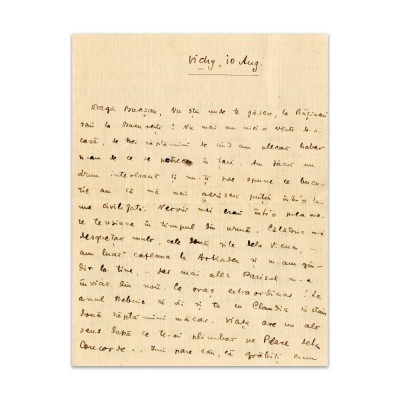 Vichy, 10 Aug.
Dragă Bucșan, Nu știu unde te găsesc, la Rășinari
sau la București! Nu mai am nici o veste de a-
casă, de trei săptămâni de când am plecat habar
n-am de ce se petrece în țară. Am făcut un
drum și nu-ți pot spune ce bucu-
rie am că mă mai aerisesc puțin într'o lu-
me civilizată. Nervii mei erau într'o prea ma-
re tensiune în timpul din urmă. Călătoria m-a
deșteptat mult, cele două zile dela Viena,
am luat cafeaua la Arkaden și m-am gân-
dit la tine, dar mai ales Parisul m-a
înviat din nou. Ce oraș extraordinar! La
anul trebuie să vii și tu cu Claudia să stăm
două săptămâni măcar. Viața are un alt
sens după ce te-ai plimbat pe Place de la
Concorde.. Îmi pare rău, că grăbiți cum